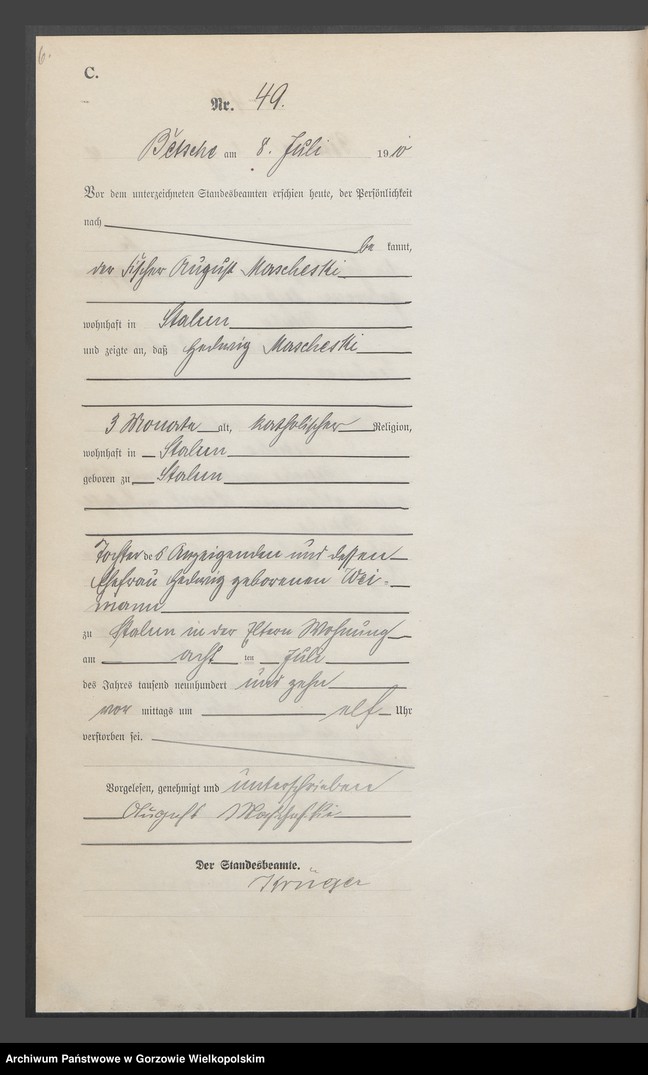 6.
C.
Nr. 49.
Betsche am 8. Juli 1910
Vor dem unterzeichneten Standesbeamten erschien heute, der Persönlichkeit
nach
be kannt,
der Fischer August Mascheski
wohnhaft in Stalun
und zeigte an, daß Hedwig Mascheski
3 Monate alt, katholischer Religion,
wohnhaft in Stalun
geboren zu Stalun
Tochter des Anzeigenden und dessen
Ehefrau Hedwig geborenen Wei-
mann
zu Stalun in der Eltern Wohnung
am acht ten Juli
des Jahres tausend neunhundert und zehn
vor mittags um elf Uhr
verstorben sei.
Vorgelesen, genehmigt und unterschrieben
August
Der Standesbeamte.
Krüger
Archiwum Państwowe w Gorzowie Wielkopolskim